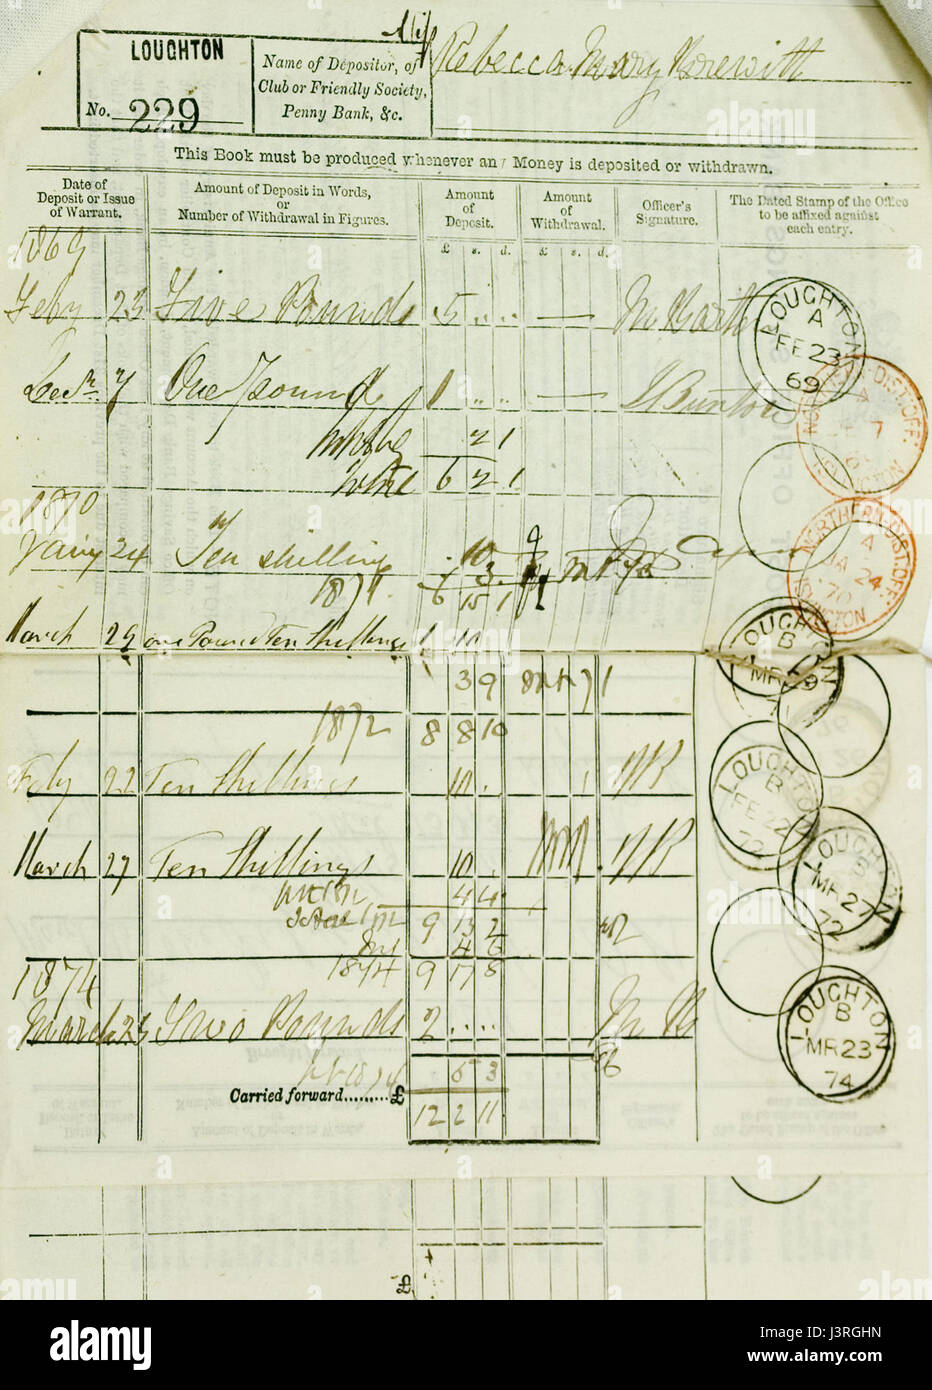 LOUGHTON
No. 229
Name of Depositor, of
Club or Friendly Society,
Penny Bank, &c.
Rebecca Mary
This Book must be produced whenever any Money is deposited or withdrawn.
Date of
Deposit or Issue
of Warrant.
Amount of Deposit in Words,
or
Number of Withdrawal in Figures.
Amount
of
Deposit.
Amount
of
Withdrawal.
Officer's
Signature.
The Dated Stamp of the Office
to be affixed against
each entry.
£ s. d. £ s. d.
1869
Feby 23 Five Pounds 5 .. .. —
LOUGHTON
A
FE 23
69
Decr. 7 One Pound 1 .. .. —
2 1
6 2 1
1870
Jany 24 Ten Shillings 10
NORTHERN DIST. OFF.
A
JA 24
70
3
1871 6 15 1
March 29 One Pound Ten Shillings 1 10
LOUGHTON
B
MR 29
71
3 9
1872 8 8 10
Feby 22 Ten Shillings 10 .
LOUGHTON
B
FE 22
72
March 27 Ten Shillings 10 .
LOUGHTON
B
MR 27
72
4 4
9 13 2
4 6
1874 9 17 8
1874
March 23 Two Pounds 2 .. ..
LOUGHTON
B
MR 23
74
5 3
Carried forward.........£ 12 2 11
£
alamy
Image ID: J3RGHN
www.alamy.com